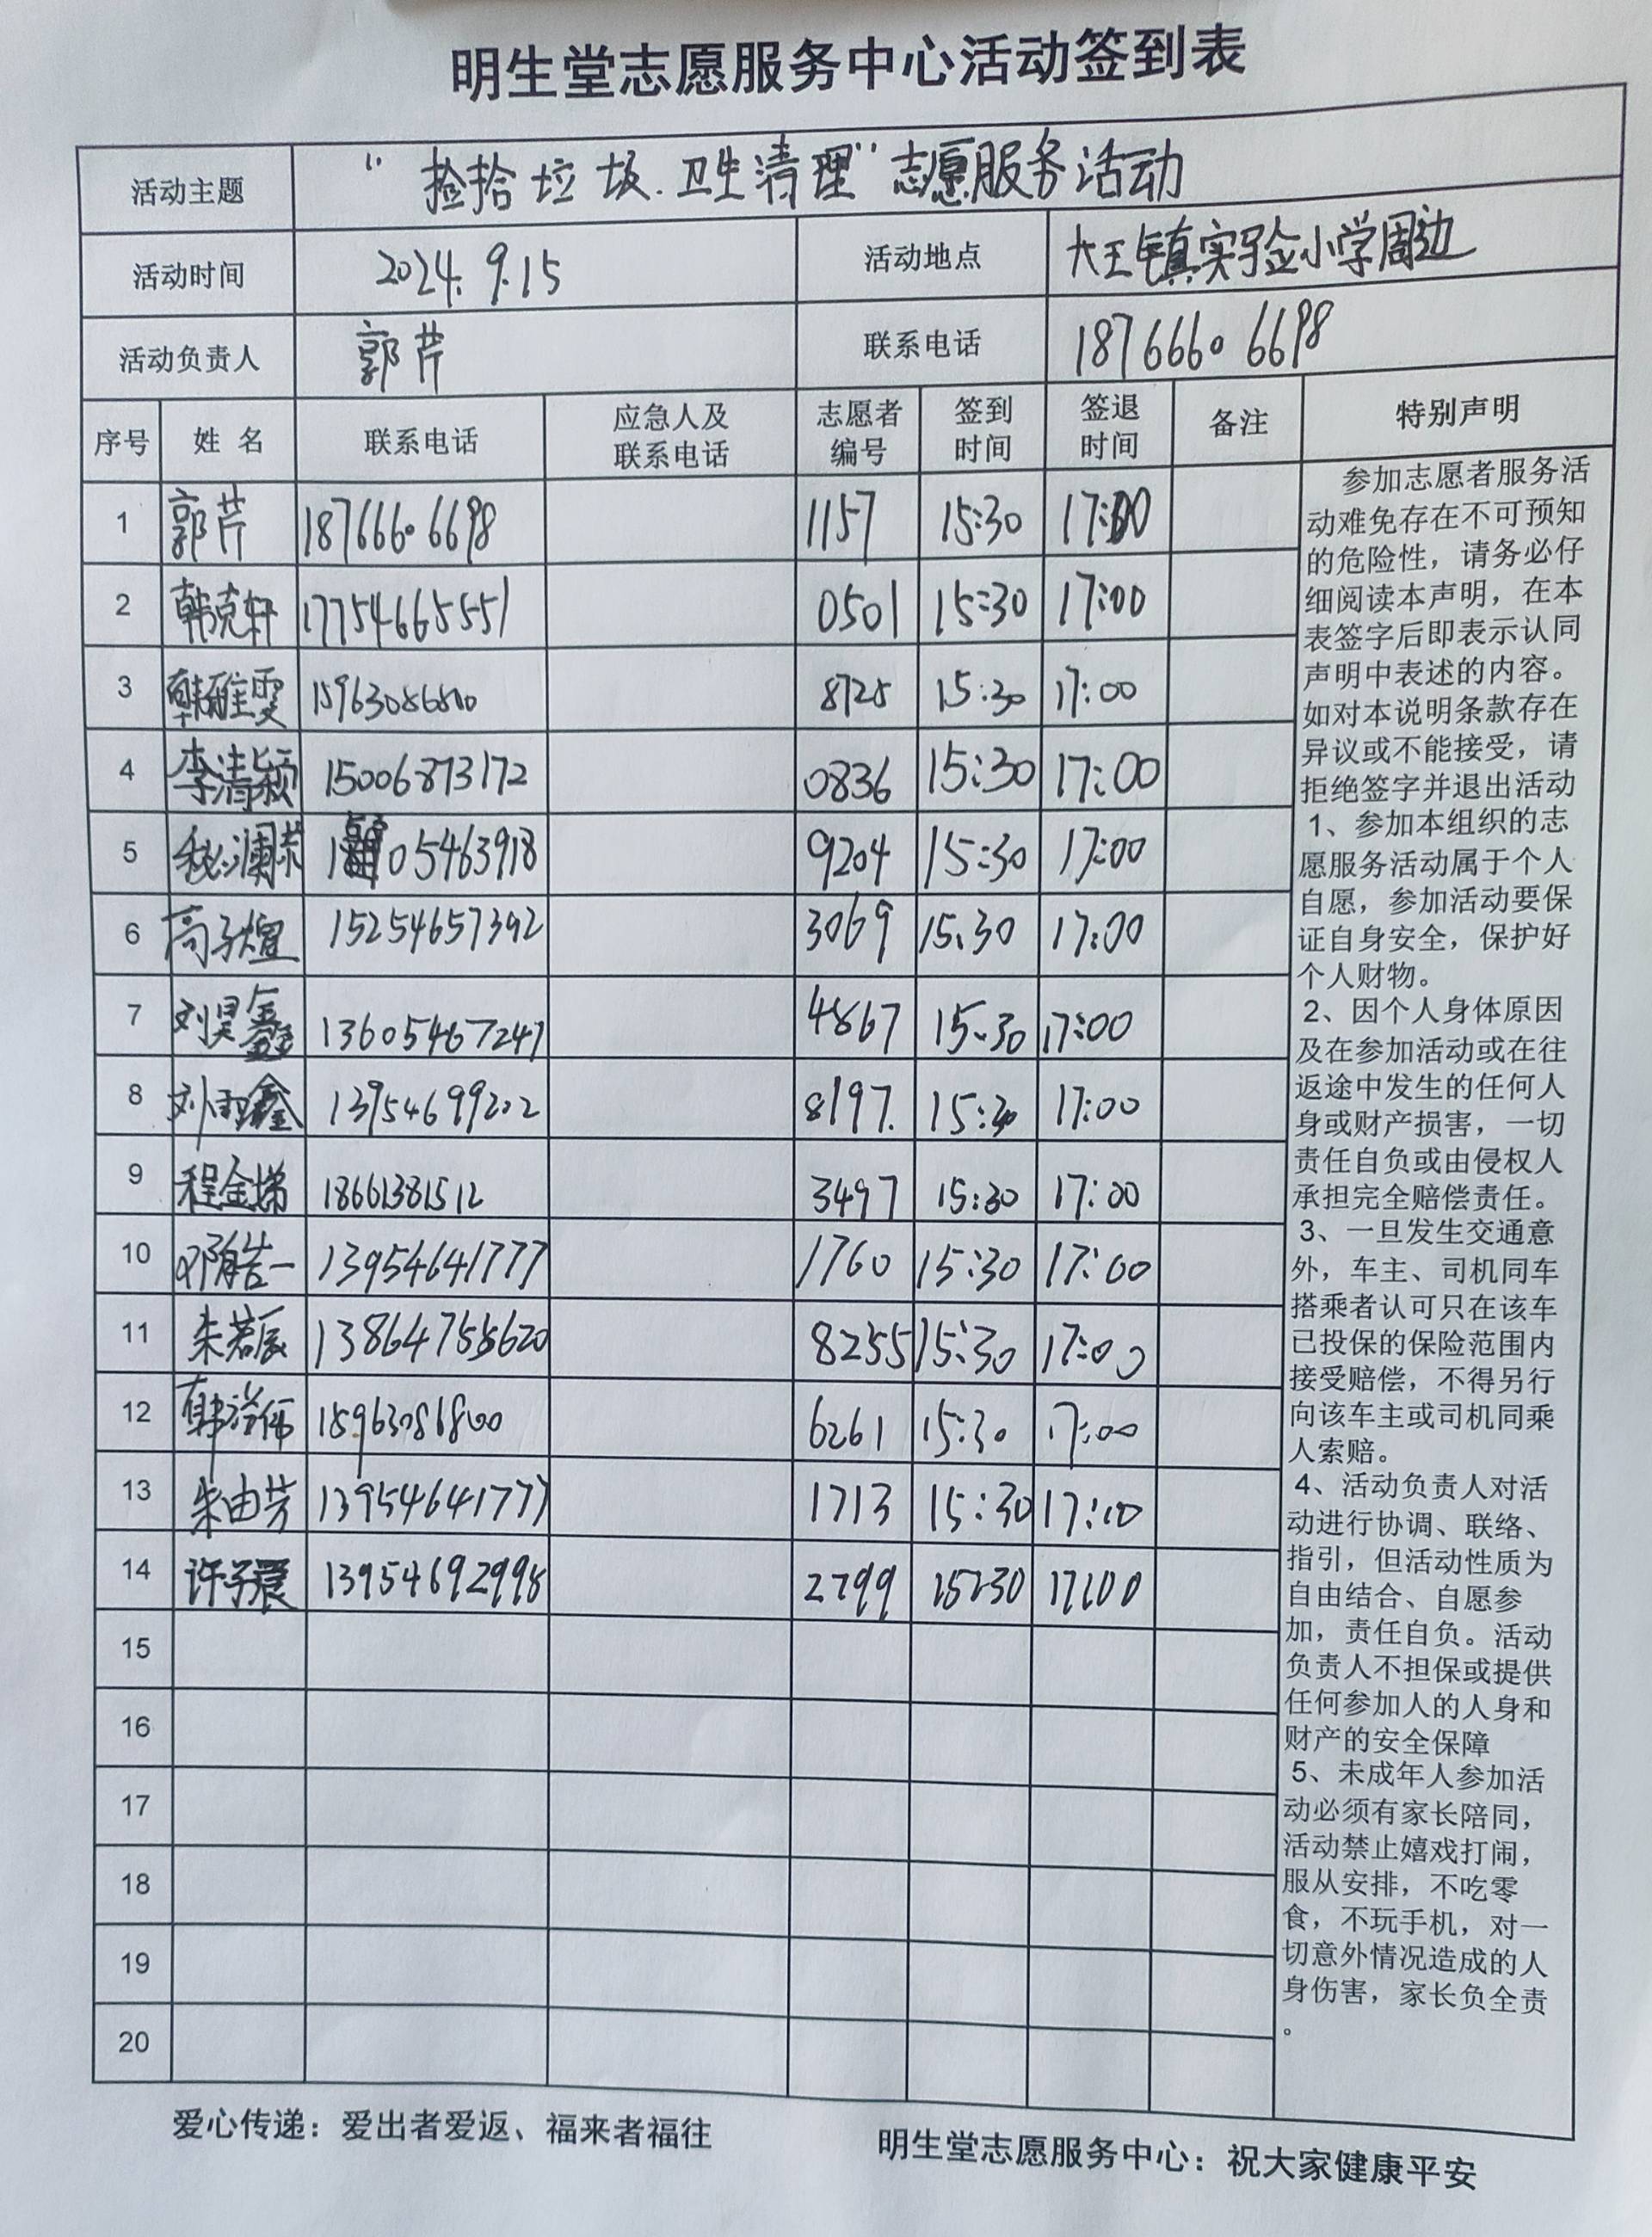 明生堂志愿服务中心活动签到表
活动主题 “捡拾垃圾.卫生清理”志愿服务活动
活动时间 2024.9.15 活动地点 大王镇实验小学周边
活动负责人 郭芹 联系电话 18766606698
序号 姓名 联系电话 应急人及联系电话 志愿者编号 签到时间 签退时间 备注 特别声明
1 郭芹 18766606698 1157 15:30 17:00
2 韩克轩 17754665551 0501 15:30 17:00
3 韩雅雯 15963086800 8725 15:30 17:00
4 李清颖 15006873172 0836 15:30 17:00
5 05463918 9204 15:30 17:00
6 高子煊 15254657392 3069 15:30 17:00
7 刘昊鑫 13605467247 4867 15:30 17:00
8 13954699202 8197. 15:30 17:00
9 程金娣 18661381512 3497 15:30 17:00
10 邓皓一 13954641777 1760 15:30 17:00
11 朱若辰 13864755620 8255 15:30 17:00
12 15963086800 6261 15:30 17:00
13 朱由芳 13954641777 1713 15:30 17:00
14 13954692998 2799 15:30 17:00
15
16
17
18
19
20
参加志愿者服务活
动难免存在不可预知
的危险性，请务必仔
细阅读本声明，在本
表签字后即表示认同
声明中表述的内容。
如对本说明条款存在
异议或不能接受，请
拒绝签字并退出活动
1、参加本组织的志
愿服务活动属于个人
自愿，参加活动要保
证自身安全，保护好
个人财物。
2、因个人身体原因
及在参加活动或在往
返途中发生的任何人
身或财产损害，一切
责任自负或由侵权人
承担完全赔偿责任。
3、一旦发生交通意
外，车主、司机同车
搭乘者认可只在该车
已投保的保险范围内
接受赔偿，不得另行
向该车主或司机同乘
人索赔。
4、活动负责人对活
动进行协调、联络、
指引，但活动性质为
自由结合、自愿参
加，责任自负。活动
负责人不担保或提供
任何参加人的人身和
财产的安全保障
5、未成年人参加活
动必须有家长陪同，
活动禁止嬉戏打闹，
服从安排，不吃零
食，不玩手机，对一
切意外情况造成的人
身伤害，家长负全责
。
爱心传递：爱出者爱返、福来者福往 明生堂志愿服务中心：祝大家健康平安